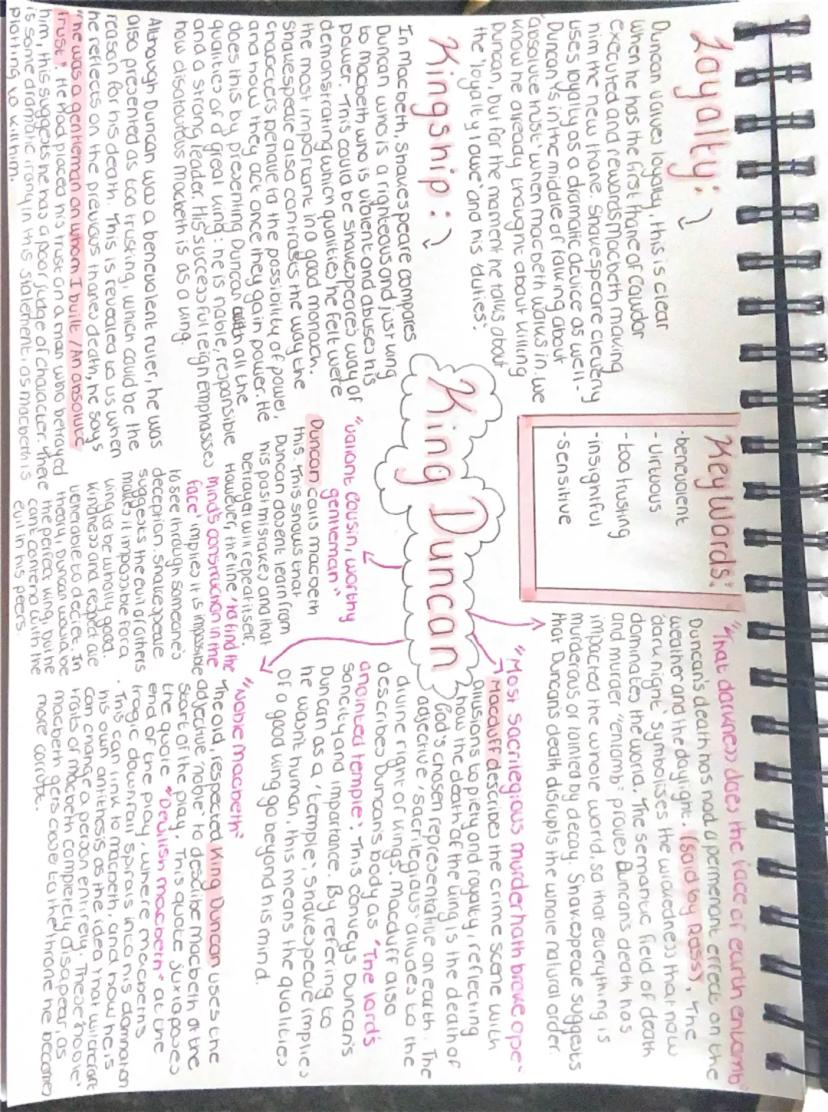 Loyalty:
Duncan values loyalty, this is clear
when he has the first thane of Cawdor
executed and rewards macbeth making
him the new thane. Shakespeare cleverly
uses loyalty as a dramatic device as well-
Duncan is in the middle of talking about
'absolute trust' when macbeth walks in, we
know he already thought about killing
Duncan, but for the moment he talks about
the 'loyalty I owe' and his 'duties'.
Kingship:
In Macbeth, Shakespeare compares
Duncan who is a righteous and just king
to Macbeth who is violent and abuses his
power. This could be Shakespeare's way of
demonstrating which qualities he felt were
the most important in a good monach.
Shakespeare also contrasts the way the
characters behave to the possibility of power,
and how they act once they gain power. He
does this by presenting Duncan with all the
qualities of a great king: he is noble, responsible
and a strong leader. His successful reign emphasises
how disatourous macbeth is as a king.
Although Duncan was a benevolent ruler, he was
also presented as too trusting, which could be the
reason for his death. This is revealed to us when
he reflects on the previous thanes death, he says
"he was a gentleman on whom I built / An absolute
trust". He had placed his trust on a man who betrayed
him, this suggests he has a poor judge of character. There
is some dramatic irony in this statement, as macbeth is
plotting to kill him.
King Duncan
Key Words:
-benevolent
-virtuous
-too trusting
-insightful
-sensitive
"valiant cousin, worthy
gentleman"
Duncan calls macbeth
this. This shows that
Duncan doesnt learn from
his past mistakes and that
betrayer will repeat itself.
However, the line 'to find the
mind's construction in the
face' implies it is impossible
to see through someone's
deception. Shakespeare
suggests the evil of others
makes it impossible for a
king to be wholly good.
kindness and respect are
venerable to deciet. In
theory, Duncan would be
the perfect king, but he
can't contend with the
evil in his peers.
"That darkness does the face of earth entomb"
Duncan's death has had a permenant effect on the
weather and the daylight. (Said by Ross), The
'dark night' symbolises the wickedness that now
dominates the world. The semantic field of death
and murder "entomb" proves Duncan's death has
impacted the whole world, so that everything is
murderous or tainted by decay. Shakespeare suggests
that Duncan's death disrupts the whole natural order
"Most sacrilegious murder hath broke ope"
Macduff describes the crime scene with
allusions to piety and royalty, reflecting
how the death of the king is the death of
God's chosen representative on earth. The
adjective 'sacrilegious' alludes to the
divine right of kings. Macduff also
describes Duncan's body as 'The lord's
anointed temple'. This conveys Duncan's
sancity and importance. By refering to
Duncan as a 'temple', Shakespeare implies
he wasn't human, this means the qualities
of a good king go beyond his mind.
"Noble macbeth"
The old, respected King Duncan uses the
adjective 'noble' to describe macbeth at the
start of the play. This quote juxtaposes
the quote "Devilish macbeth" at the
end of the play, where macbeths
tragic downfall spirals into his damnation
. This can link to macbeth, and how he is
his own antithesis as the idea that witchcraft
can change a person entirely. These 'noble'
traits of macbeth completely disapear, as
macbeth gets close to the throne he becomes
more corrupt.